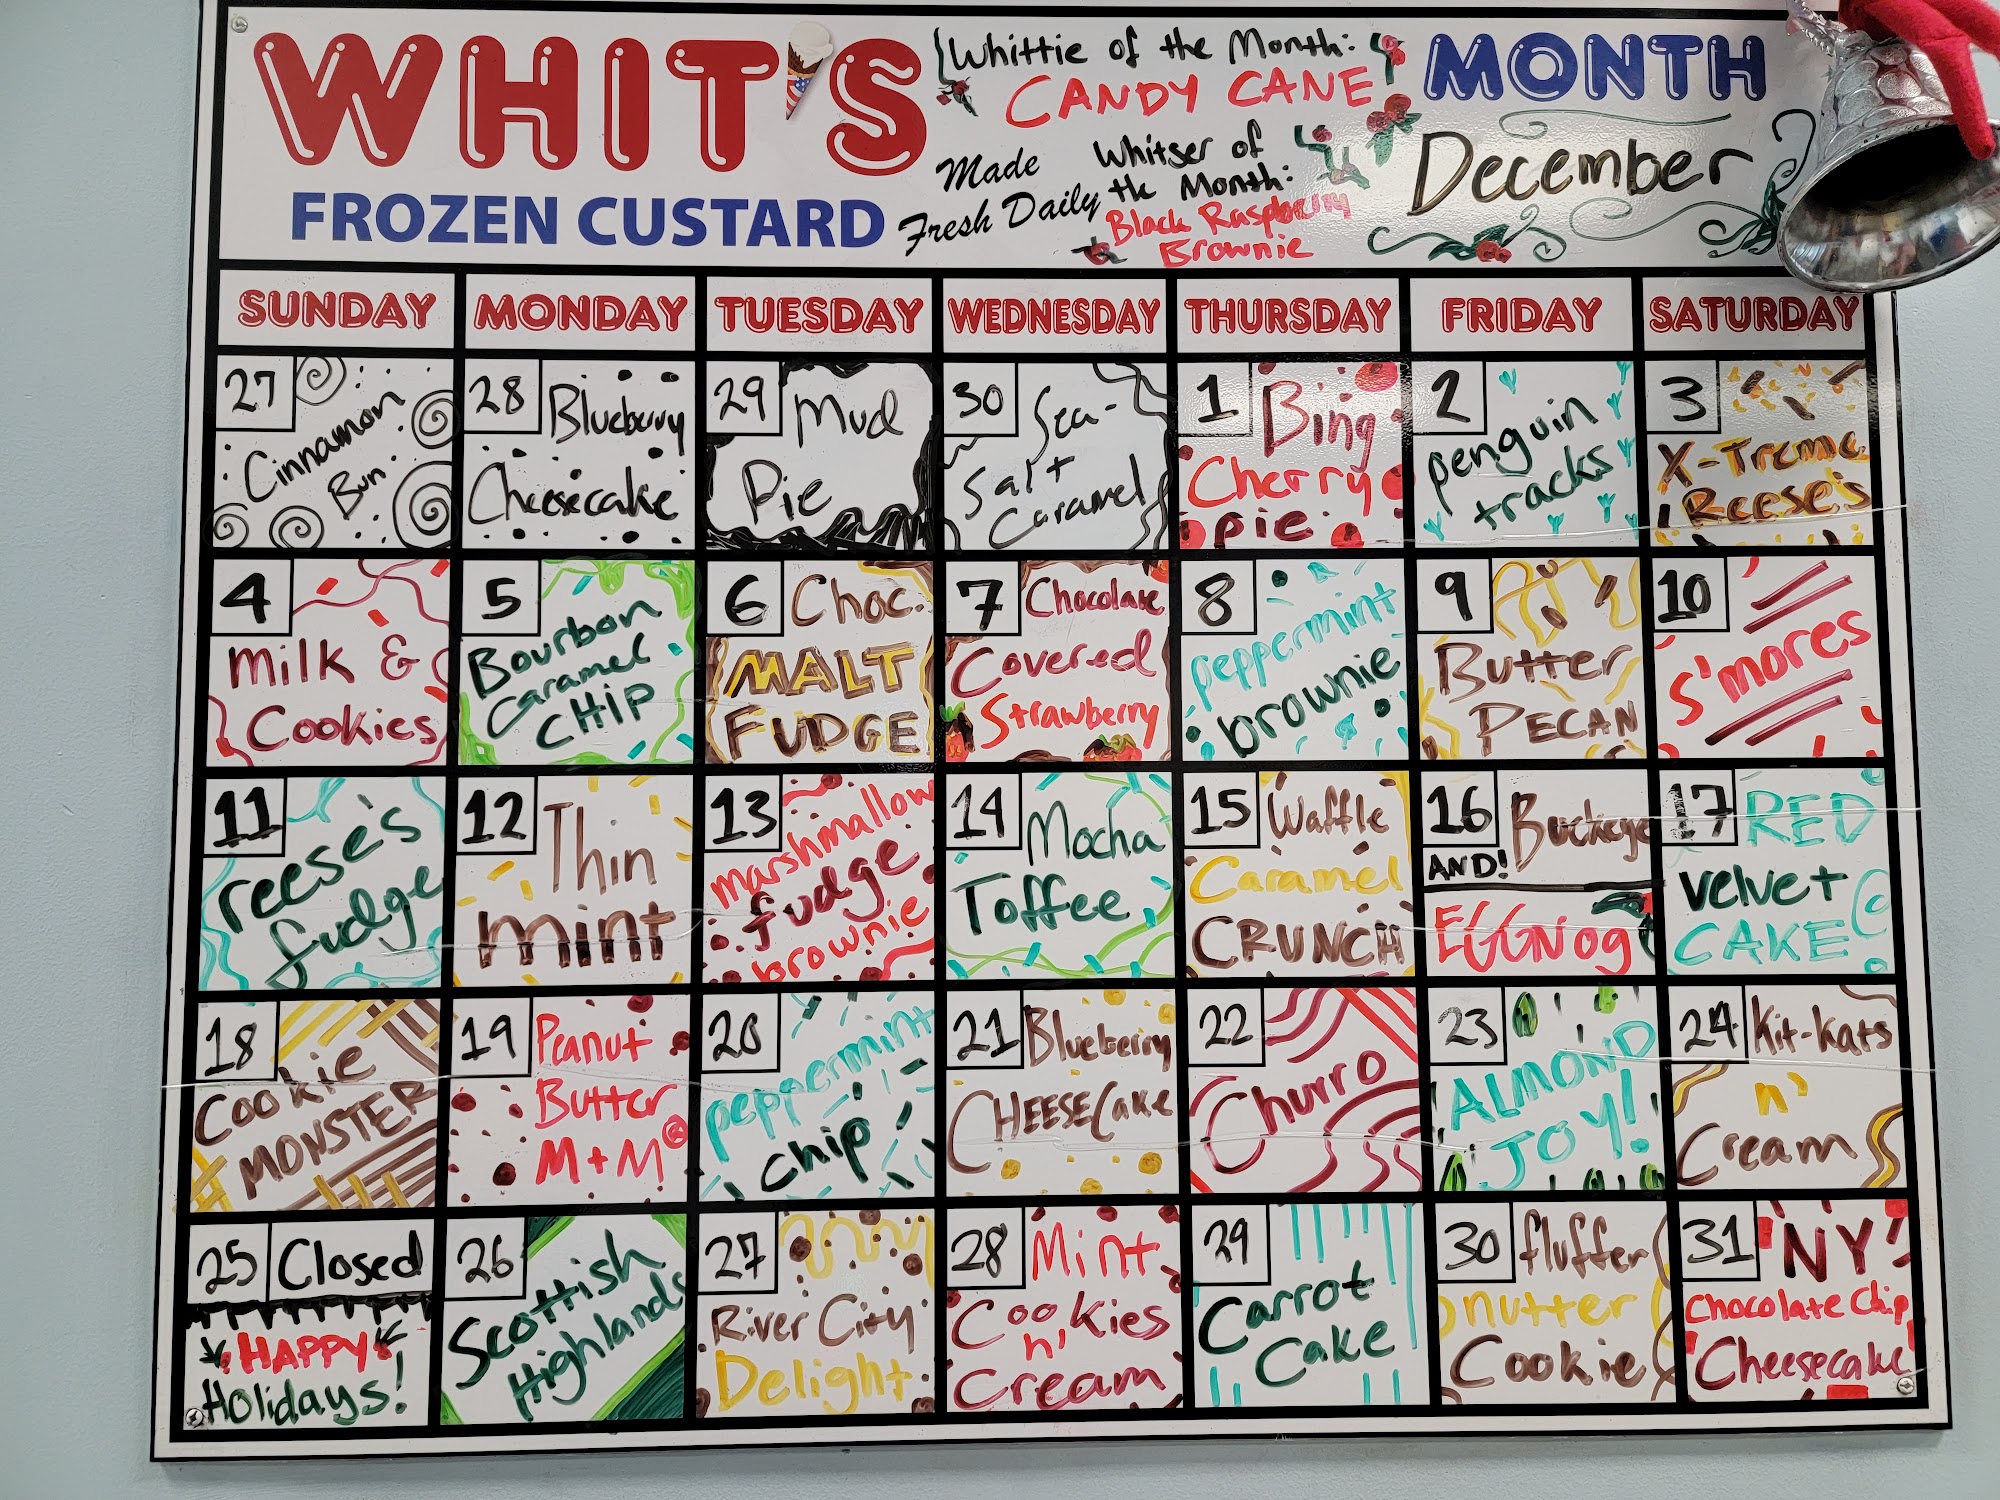 WHIT'S
FROZEN CUSTARD
Made
Fresh Daily
Whittie of the Month:
CANDY CANE
Whitser of
the Month:
Black Raspberry
Brownie
MONTH
December
SUNDAY MONDAY TUESDAY WEDNESDAY THURSDAY FRIDAY SATURDAY
27
Cinnamon
Bun
28 Blueberry
Cheesecake
29 Mud
Pie
30 Sea-
Salt
Caramel
1 Bing
Cherry
pie
2
penguin
tracks
3
X-Treme
Reese's
4
Milk &
Cookies
5
Bourbon
Caramel
CHIP
6 Choc.
MALT
FUDGE
7 Chocolate
Covered
Strawberry
8
peppermint
brownie
9
Butter
PECAN
10
S'mores
11
reese's
fudge
12 Thin
mint
13
marshmallow
fudge
brownie
14 Mocha
Toffee
15 Waffle
Caramel
CRUNCH
16 Buckeye
AND!
EGGNog
17 RED
velvet
CAKE
18
Cookie
MONSTER
19 Peanut
Butter
M+M
20
peppermint
chip
21 Blueberry
CHEESECake
22
Churro
23
ALMOND
JOY!
24 Kit-Kats
n'
Cream
25 Closed
HAPPY
Holidays!
26
Scottish
Highlands
27
River City
Delight
28 Mint
Cookies
n'
Cream
29
Carrot
Cake
30 fluffer
nutter
Cookie
31 NY
Chocolate Chip
Cheesecake